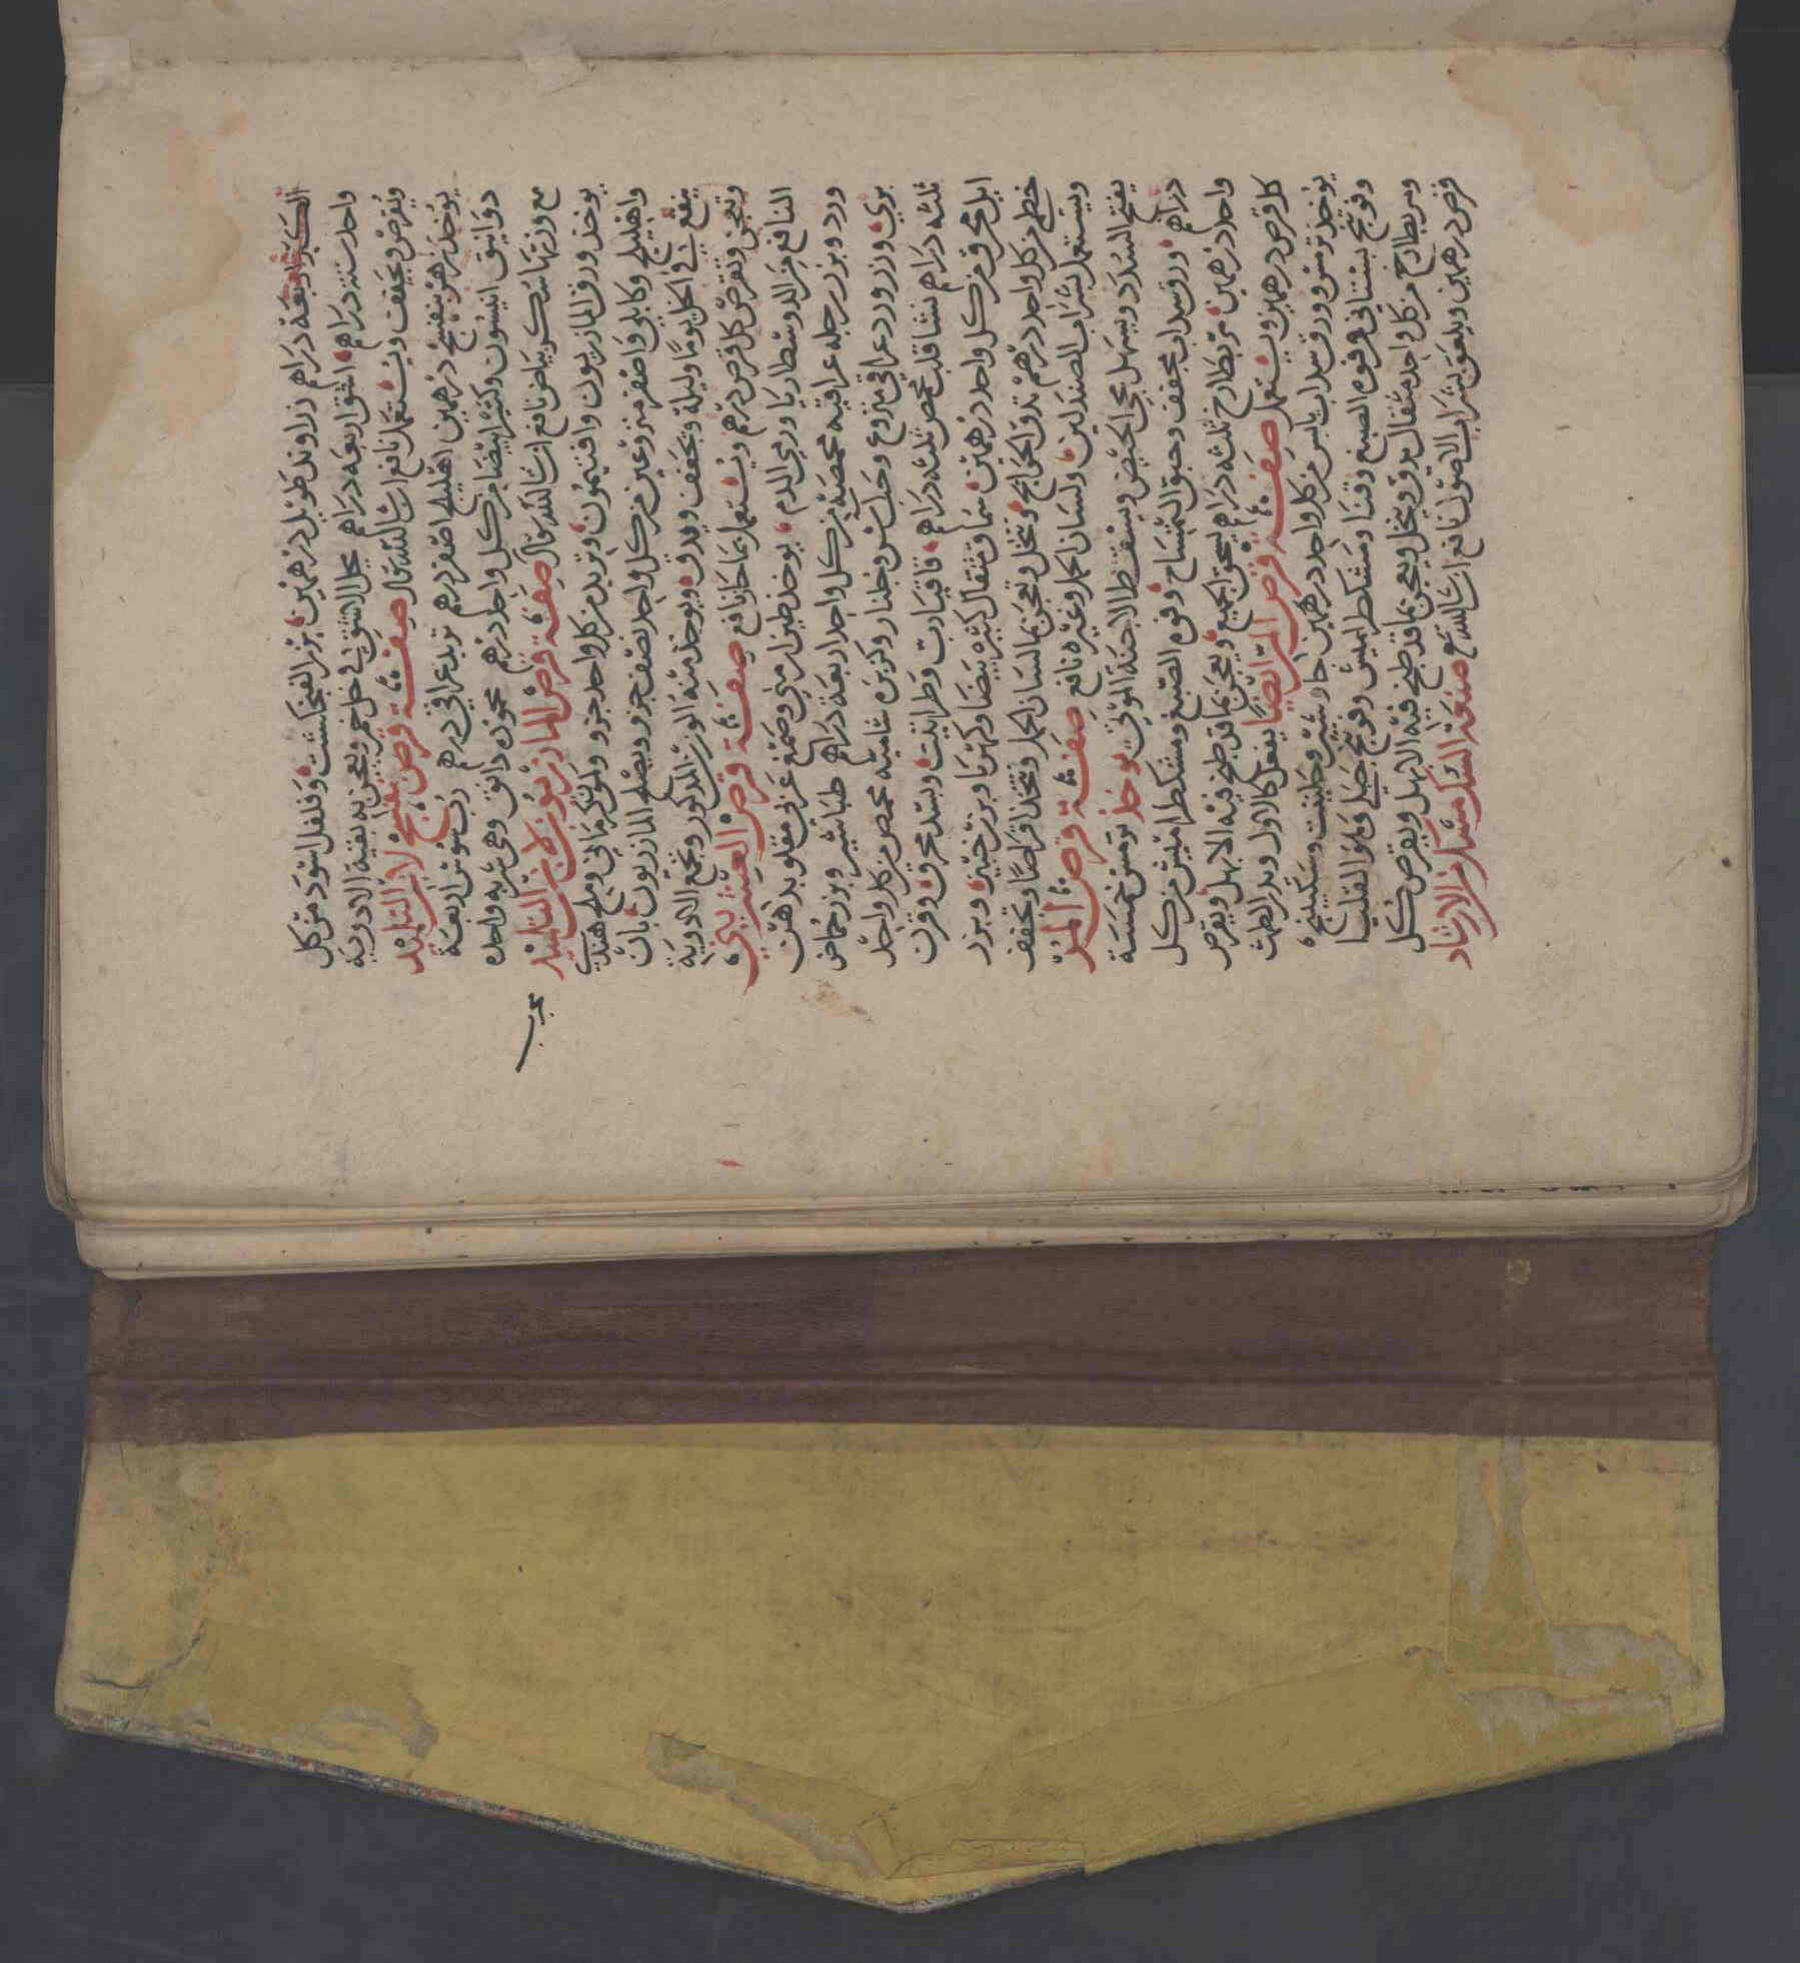 الكبر اربعة دراهم زراوند طويل درهمين بزر الفنجنكشت وفلفل اسود من كل
واحد ستة دراهم اشق اربعة دراهم يحل الاشق في خل خمر ويعجن به بقية الادوية
ويقرص ويجفف ويستعمل نافع ان شا الله تعالى صفة قرص بنفسج لابن التلميد
يوخذ زهر بنفسج درهمين اهليلج اصفر درهم تربد عراقي درهم رب سوس اربعة
دوانيق انيسون وكثيرا بيضا من كل واحد درهم محموده دانق وهي شربه واحده
مع وزنها سكر بياض نافع ان شا الله تعالى صفة قرص المازريون لابن التلميد
مجرب
يوخذ ورق المازريون وافتيمون وتربد من كل واحد جزو كرماني وملح هندي
واهليلج وكابلي واصفر منزوعين من كل واحد نصف جزو ويصلح المازريون بان
ينقع في الخل يوما وليلة ويجفف ويدق ويوخذ منه الوزن المذكور ويجمع الادوية
وتعجن وتقرص كل قرص درهم ويستعمل بما حار نافع صفة قرص
النافع من الدوسنطاريا ورمي الدم يوخذ طين ارمني وصمغ عربي مقلو بدهن
ورد وبزر رجله عراقيه محمصه من كل واحد اربعة دراهم طباشير وبزر حماض
بري وزر ورد عراقي منزوع وحب اس وجلنار وكزبره شاميه محمص من كل واحد
ثلثه دراهم نشا قلب محمص ثلثه دراهم قاقيا وبسد محرق وقرن
ايل محرق من كل واحد درهمين سماق مثقال كثيره بيضا وكهربا وبزر خبيز وبزر
خطمي من كل واحد درهم تدق الحوايج وتنخل وتعجن بما لسان الحمل وتتخذ اقراصا وتجفف
ويستعمل بشراب الصندلين ولسان الحمل وغيره نافع صفة قرص المر
يفتح السدد ويسهل مجي الحيض ويسقط الاجنة الموتى يوخذ ترمس خمسة
دراهم ورق سداب مجفف وحبق التمساح وفوه الصبغ ومشكطرامشير من كل
واحد درهمين مر بطارخ ثلثه دراهم يسحق الجميع ويعجن بما قد طبخ فيه الابهل ويقرص
كل قرص درهمين ويستعمل صفة قرص المر ايضا يفعل كالاول ويدر الطمث
يوخذ ترمس وورق سداب يابس من كل واحد درهمين جاوشير وحلتيت وسكبينج
وفوتنج بستاني وفوه الصبغ وقنا ومشكطرامشير وفوتنج جبلي
ومر بطارخ من كل واحد مثقال يدق وينخل ويعجن بما قد طبخ فيه الابهل ويقرص كل
قرص درهمين ويلعق بشراب الاصول نافع ان شا الله تع صنعة السك مسك من الارشاد